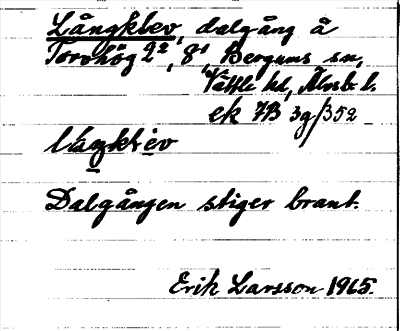 Långklev, dalgång å
Torvhög 2², 8¹, Bergums sn,
Vättle hd, Älvsb. l.
ek 7B 3g/352
långklev
Dalgången stiger brant.
Erik Larsson 1965.